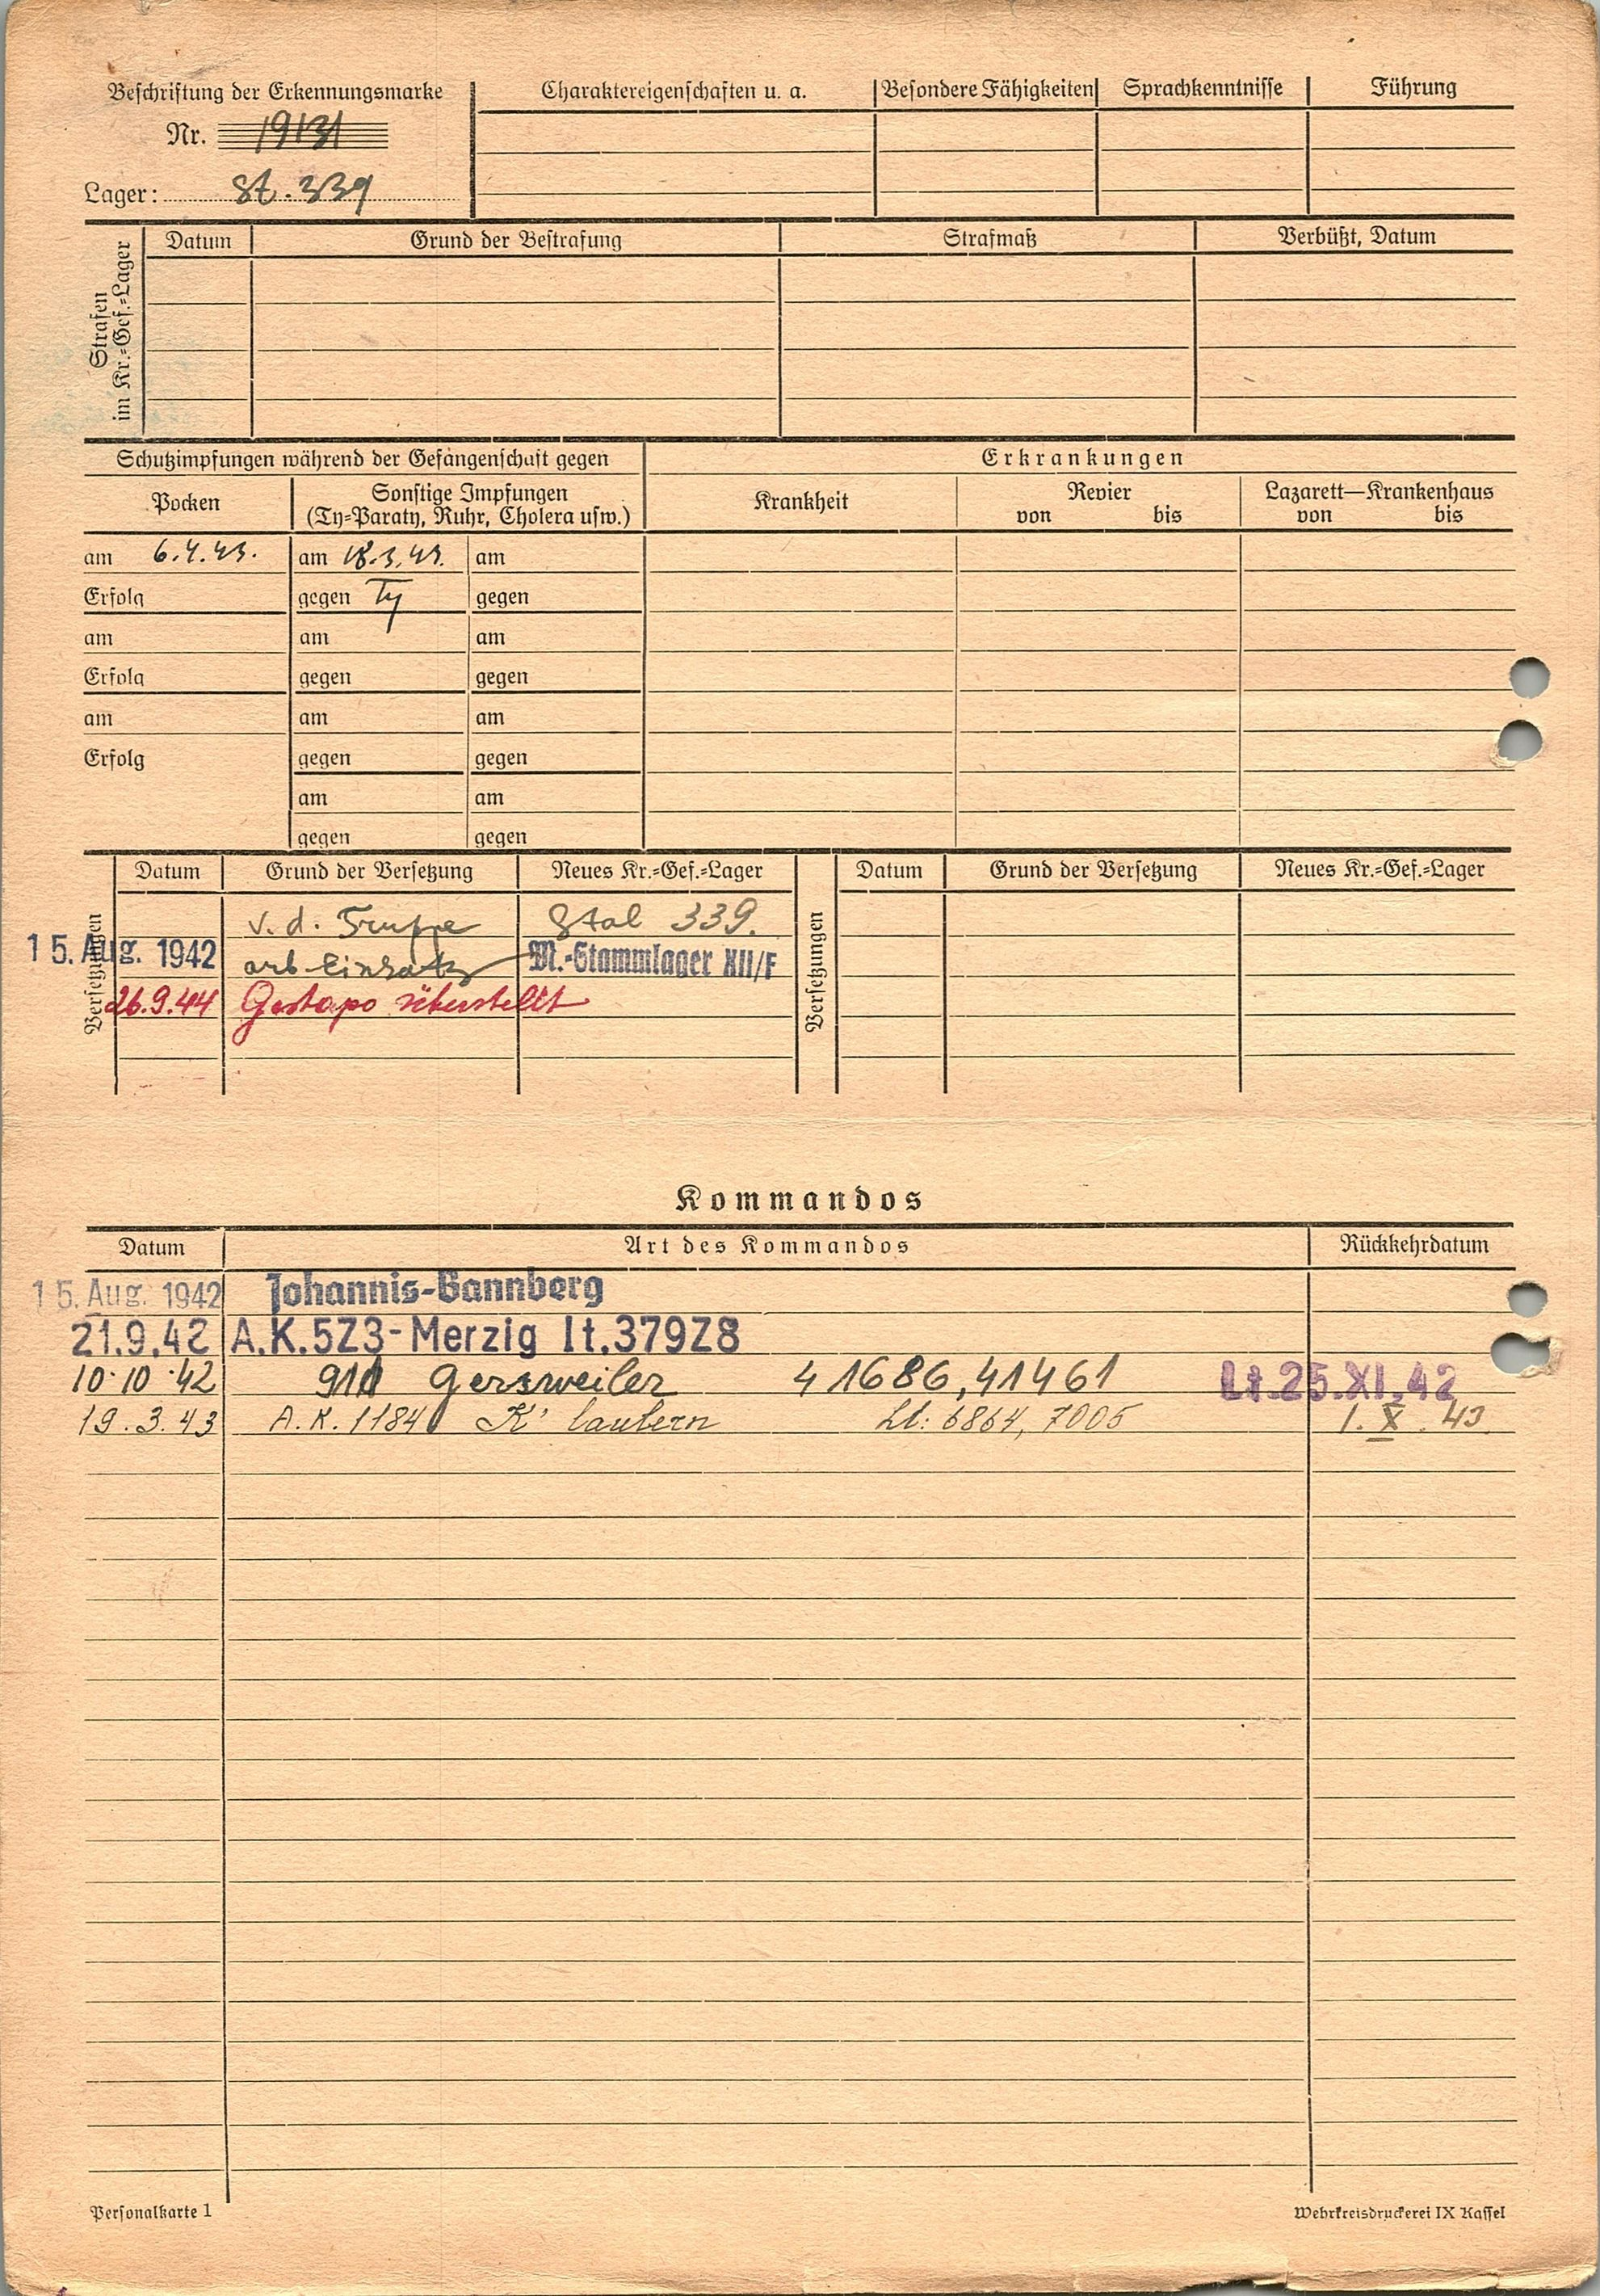 Beschriftung der Erkennungsmarke
Nr. 19131
Lager: St. 339
Charaktereigenschaften u. a.
Besondere Fähigkeiten
Sprachkenntnisse
Führung
Strafen
im Kr.=Gef.=Lager
Datum
Grund der Bestrafung
Strafmaß
Verbüßt, Datum
Schutzimpfungen während der Gefangenschaft gegen
Erkrankungen
Pocken
Sonstige Impfungen
(Ty=Paraty, Ruhr, Cholera usw.)
Krankheit
Revier
von bis
Lazarett—Krankenhaus
von bis
am 6.4.43. am 18.3.43. am
Erfolg gegen Ty gegen
am am am
Erfolg gegen gegen
am am am
Erfolg gegen gegen
am am
gegen gegen
Versetzungen
Datum Grund der Versetzung Neues Kr.=Gef.=Lager
v. d. Truppe Stal 339.
15. Aug. 1942 arb-Einsatz M.-Stammlager XII/F
26.9.44 Gestapo überstellt
Versetzungen
Datum Grund der Versetzung Neues Kr.=Gef.=Lager
Kommandos
Datum Art des Kommandos Rückkehrdatum
15. Aug. 1942 Johannis-Bannberg
21.9.42 A.K.523-Merzig lt.37928
10.10.42 911 Gersweiler 41686,41461 Lt.25.XI.42
19.3.43 A.K.1184 K' lautern Lt: 6864, 7005 1. X. 43.
Personalkarte 1
Wehrkreisdruckerei IX Kassel